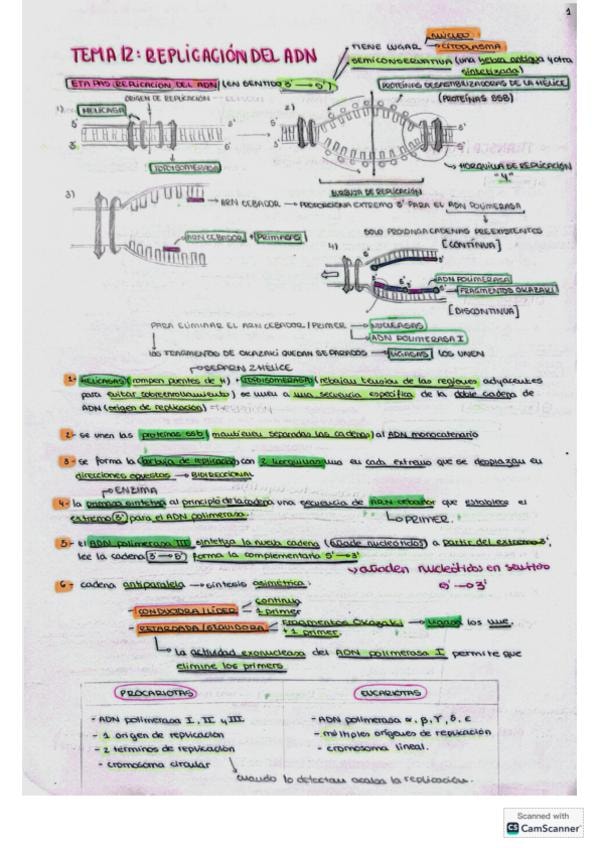 1
TEMA 12: REPLICACIÓN DEL ADN
TIENE LUGAR
NÚCLEO
CITOPLASMA
SEMICONSERVATIVA (una hebra antigua y otra sintetizada)
ETAPAS REPLICACIÓN DEL ADN (EN SENTIDO 5' → 3')
PROTEÍNAS DESESTABILIZADORAS DE LA HÉLICE
(PROTEÍNAS SSB)
ORIGEN DE REPLICACIÓN
1)
HELICASA
2)
5'
3'
TOPOISOMERASA
HORQUILLA DE REPLICACIÓN
"Y"
BURBUJA DE REPLICACIÓN
3)
ARN CEBADOR → PROPORCIONA EXTREMO 3' PARA EL ADN POLIMERASA
SOLO PROLONGA CADENAS PREEXISTENTES
ARN CEBADOR + PRIMASA
4)
[CONTÍNUA]
ADN POLIMERASA
FRAGMENTOS OKAZAKI
[DISCONTÍNUA]
PARA ELIMINAR EL ARN CEBADOR / PRIMER
NUCLEASAS
ADN POLIMERASA I
LOS FRAGMENTOS DE OKAZAKI QUEDAN SEPARADOS → LIGASAS LOS UNEN
SEPARN 2 HÉLICE
1- HELICASAS (rompen puentes de H) + TOPOISOMERASA (rebajan tensión de las regiones adyacentes
para evitar sobreenrollamiento) se unen a una secuencia específica de la doble cadena de
ADN (origen de replicación)
2- se unen las proteínas SSB (mantienen separadas las cadenas) al ADN monocatenario
3- se forma la burbuja de replicación con 2 horquillas una en cada extremo que se desplazan en
direcciones opuestas → BIDIRECCIONAL
ENZIMA
4- la primasa sintetiza al principio de la cadena una secuencia de ARN cebador que establece el
extremo 3' para el ADN polimerasa.
PRIMER.
5- el ADN polimerasa III, sintetiza la nueva cadena (añade nucleótidos) a partir del extremo 3',
lee la cadena 3' → 5' forma la complementaria 5' → 3'
añaden nucleótidos en sentido
5' → 3'
6- cadena antiparalela → síntesis asimétrica:
CONDUCTORA / LÍDER
continua
1 primer
RETARDADA / SEGUIDORA
Fragmentos Okazaki → ligasa los une.
+ 1 primer.
La actividad exonucleasa del ADN polimerasa I permite que
elimine los primers
PROCARIOTAS
- ADN polimerasa I, II y III
- 1 origen de replicación
- 2 términos de replicación
- cromosoma circular
cuando lo detectan acaba la replicación.
EUCARIOTAS
- ADN polimerasa α, β, γ, δ, ε
- múltiples orígenes de replicación
- cromosoma lineal.
Scanned with
CS CamScanner